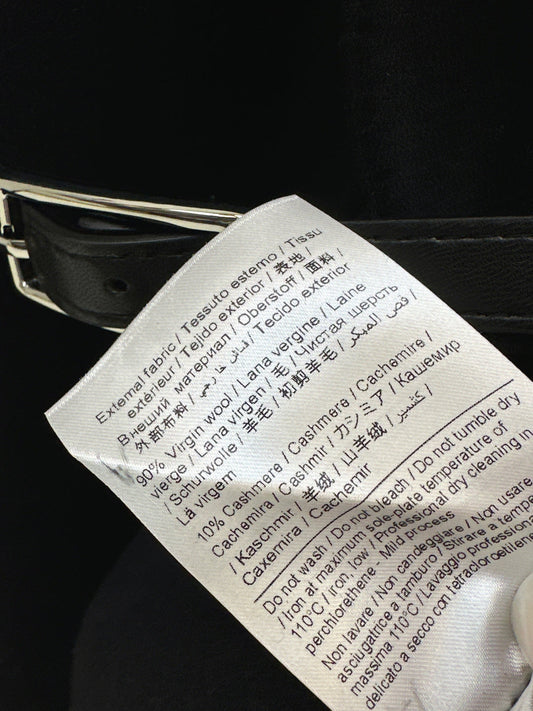 External fabric / Tessuto esterno / Tissu
extérieur / Tejido exterior / 表地 /
Внеший материал / Oberstoff / 面料 /
外部布料 / قماش خارجي / Tecido exterior
90% Virgin wool / Lana vergine / Laine
vierge / Lana virgen / 毛 / Чистая шерсть
/ Schurwolle / 羊毛 / 初剪羊毛 / قص المبكر /
Lã virgem
10% Cashmere / Cashmere / Cachemire /
Cachemira / Cashmir / カシミア / Кашемир
/ Kaschmir / 羊绒 / 山羊絨 / كشمير /
Caxemira / Cachemir
Do not wash / Do not bleach / Do not tumble dry
/ Iron at maximum sole-plate temperature of
110°C / iron low / Professional dry cleaning in
perchlorethene - Mild process
Non lavare / Non candeggiare / Non usare
asciugatrice a tamburo / Stirare a tempe
massima 110°C / Lavaggio professiona
delicato a secco con tetracloroetilene